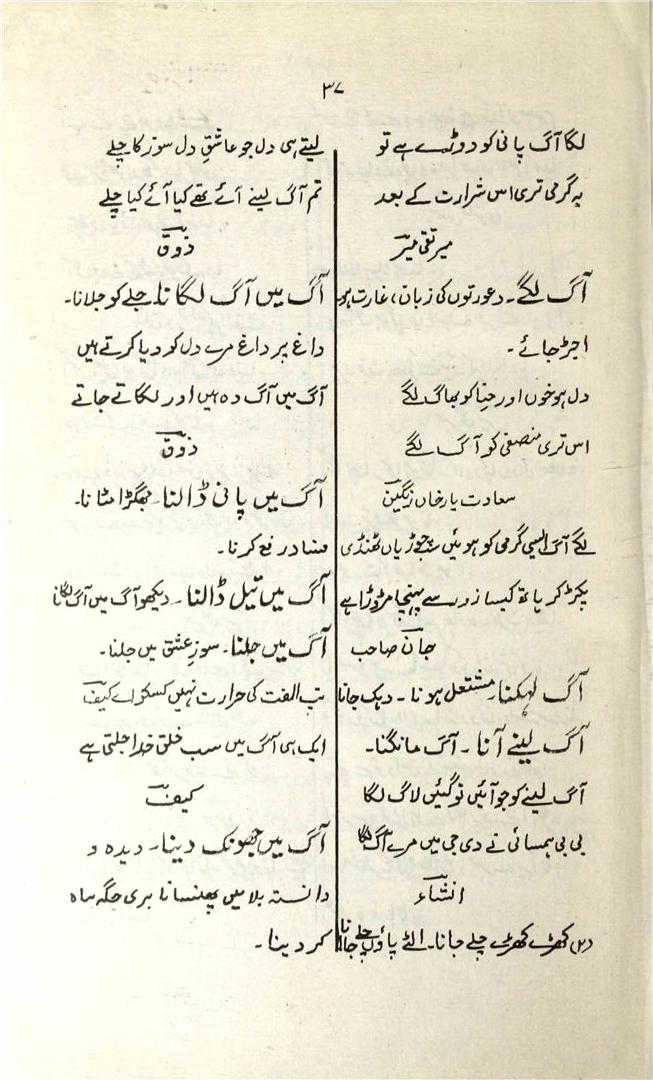 ۳۷
لگا آگ پانی کو دوڑے ہے تو
یہ گرمی تری اس شرارت کے بعد
میر تقی میر
آگ لگے۔ دعورتوں کی زبان، غارت ہو
اجڑ جائے۔
دل ہو خوں اور حنا کو بھاگ لگے
اس تری منصفی کو آگ لگے
سعادت یار خاں رنگین
لگے آگ ایسی گرمی کو ہوئیں سب چوڑیاں ٹھنڈی
پکڑ کر ہاتھ کیسا زور سے پہنچا مروڑا ہے
جان صاحب
آگ لہکنا۔ مشتعل ہونا۔ دہک جانا
آگ لینے آنا۔ آگ مانگنا۔
آگ لینے کو جو آئیں تو گئیں لاگ لگا
بی بی ہمسائی نے دی جی میں مرے آگ لگا
انشاء
(۲) کھڑے کھڑے چلے جانا۔ الٹے پاؤں چلے جانا
لیتے ہی دل جو عاشقِ دل سوز کا چلے
تم آگ لینے آئے تھے کیا آئے کیا چلے
ذوق
آگ میں آگ لگانا۔ جلے کو جلانا۔
داغ پر داغ مرے دل کو دیا کرتے ہیں
آگ میں آگ دہ ہیں اور لگاتے جاتے
ذوق
آگ میں پانی ڈالنا۔ جھگڑا مٹانا۔
فساد رفع کرنا۔
آگ میں تیل ڈالنا۔ دیکھو آگ میں آگ لگانا
آگ میں جلنا۔ سوزِ عشق میں جلنا۔
تب الفت کی حرارت نہیں کسکو اے کیف
ایک ہی آگ میں سب خلق خدا جلتی ہے
کیف
آگ میں جھونک دینا۔ دیدہ و
دانستہ بلا میں پھنسانا بری جگہ بیاہ
کر دینا۔